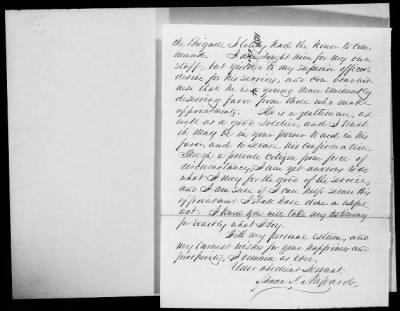 the Brigade I lately had the honor to com-
mand. I have sought him for my own
staff, but yielded to my superior officers
desire for his services, and can bear wit-
ness that he is a young man eminently
deserving favor from those who make
appointments. He is a gentleman, as
well as a good soldier, and I trust
it may be in your power to aid in his
favor, and to secure his confirmation
Though a private citizen from force of
circumstances, I am yet anxious to do
what I may for the good of the service,
and I am sure if I can help secure this
appointment I shall have done a useful
act. I know you will take my testimony
for exactly what I say.
With my personal esteem, and
my earnest wishes for your happiness and
prosperity, I remain as ever
Your obedient Servant,
Isaac J.